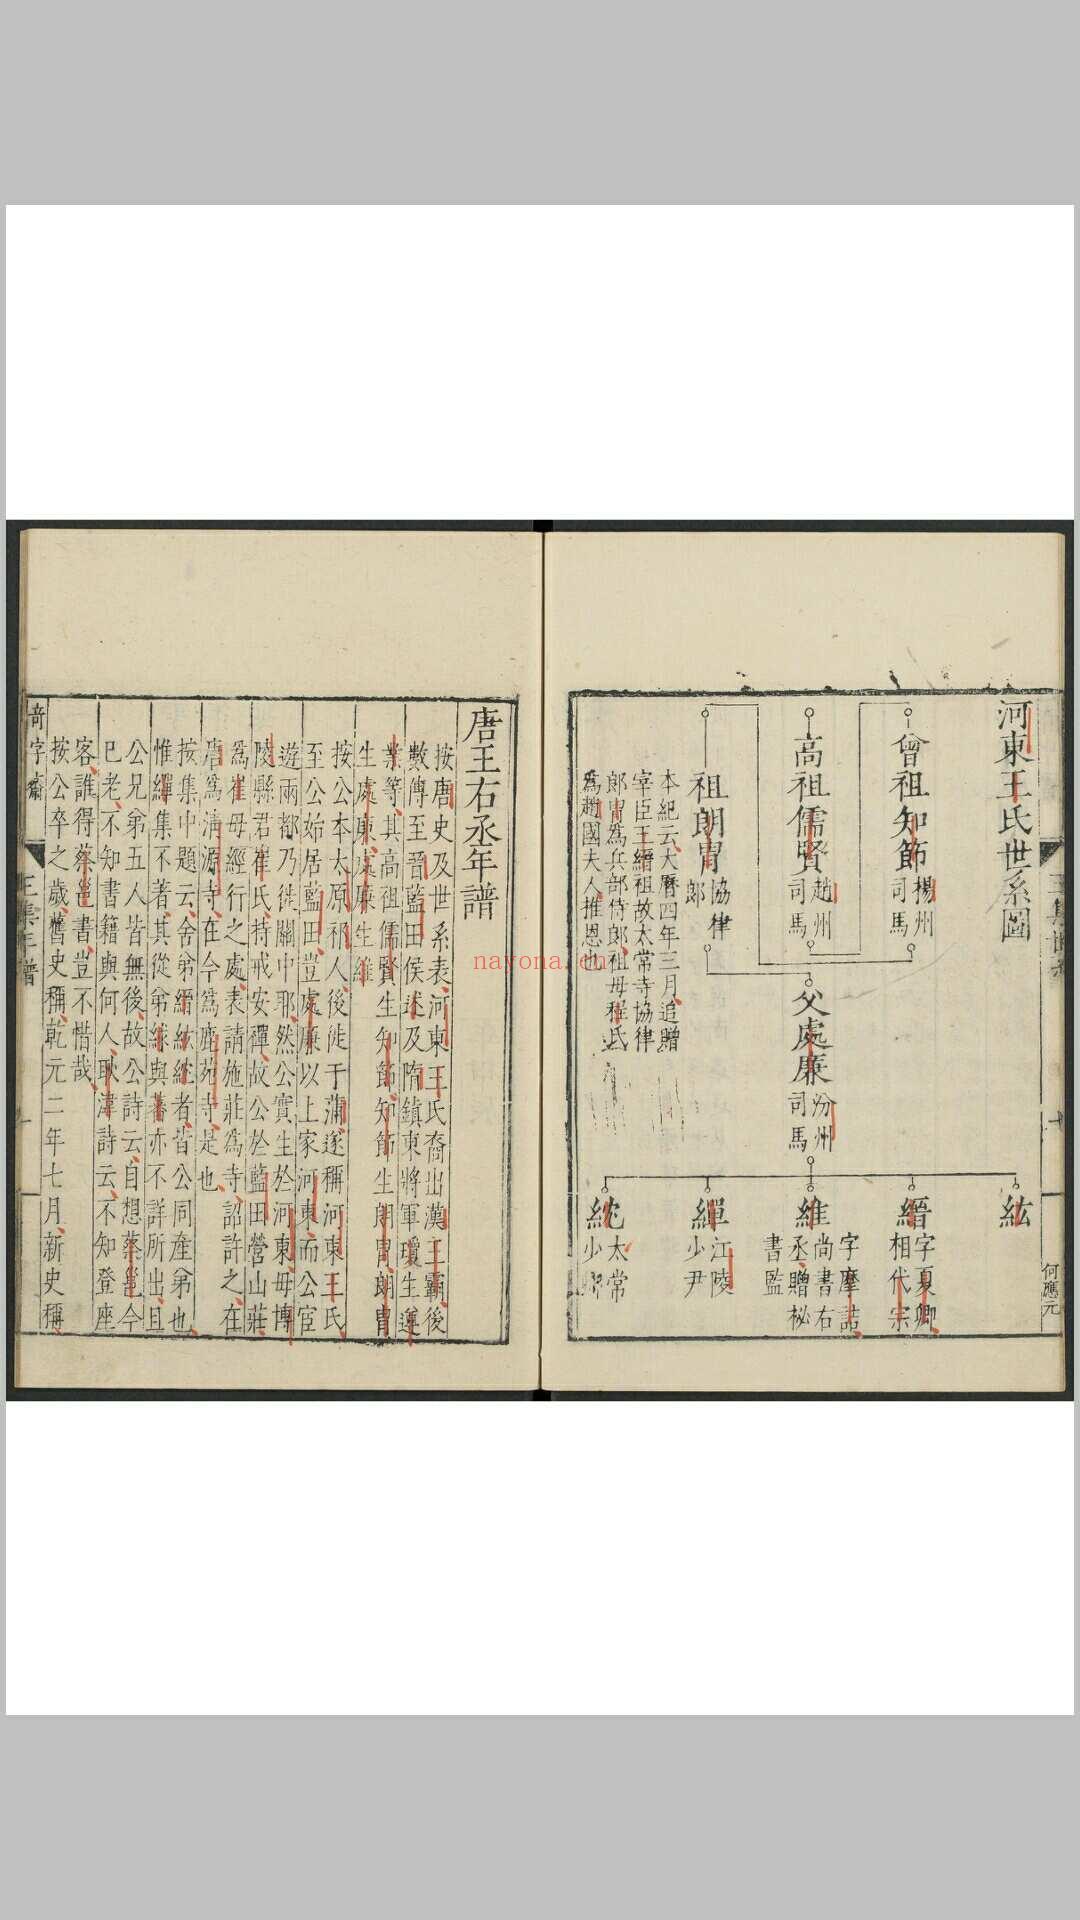 河東王氏世系圖
曾祖知節
楊州
司馬
高祖儒賢
趙州
司馬
祖朗胄
協律
郎
本紀云大曆四年三月追贈
宰臣王縉祖故太常寺協律
郎胄為兵部侍郎祖母程氏
為趙國夫人推恩也
父處廉
汾州
司馬
紘
縉
字夏卿
相代宗
維
字摩詰
尚書右
丞贈祕
書監
繟
江陵
少尹
紞
太常
少卿
何應元
唐王右丞年譜
按唐史及世系表河東王氏裔出漢王霸後
數傳至晉藍田侯述及隋鎮東將軍瓊生遵
業等其高祖儒賢生知節知節生朗胄朗胄
生處東處廉生維
按公本太原祁人後徙于蒲遂稱河東王氏
至公始居藍田豈處廉以上家河東而公宦
遊兩都乃徙關中耶然公實生於河東母博
陵縣君崔氏持戒安禪故公於藍田營山莊
為崔母經行之處表請施莊為寺詔許之在
唐為清源寺在今為鹿苑寺是也
按集中題云舍弟縉紘紞者皆公同產弟也
惟繟集不著其從弟絿與蕃亦不詳所出且
公兄弟五人皆無後故公詩云自想蔡邕今
已老不知書籍與何人耿湋詩云不知登座
客誰得蔡邕書豈不惜哉
按公卒之歲舊史稱乾元二年七月新史稱
奇字齋
王集年譜
一
nayona.cn